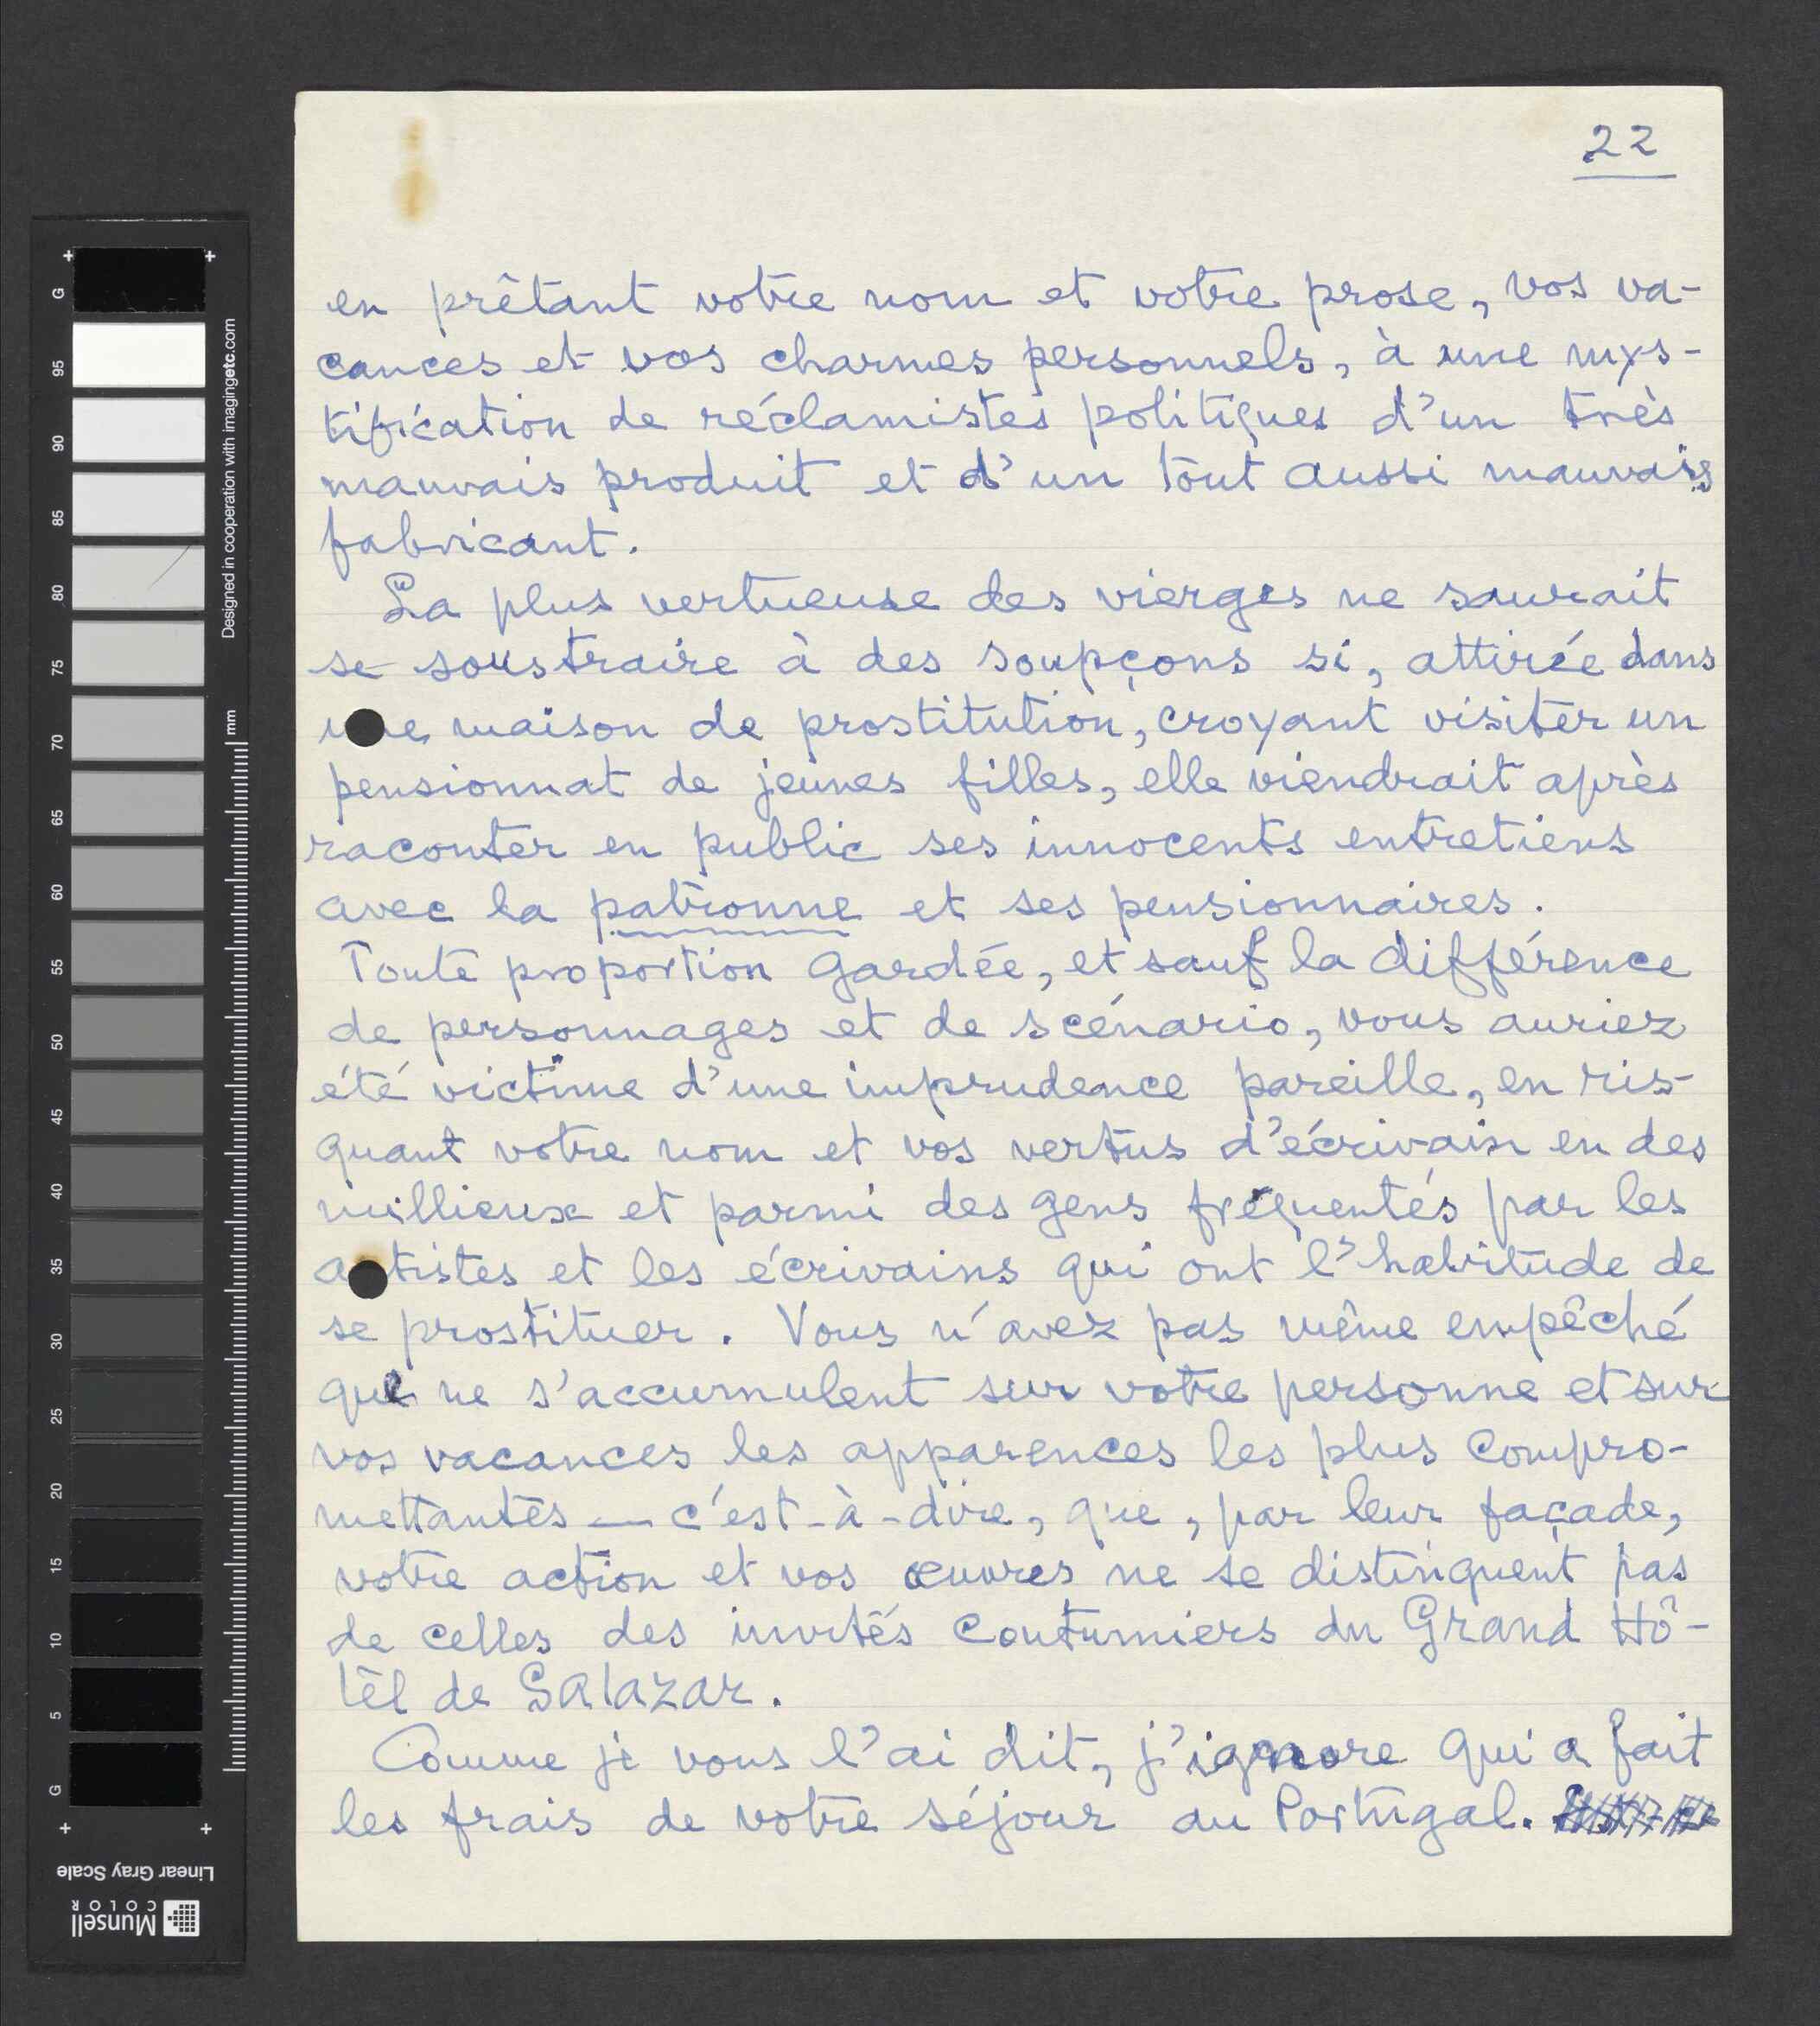 22
en prêtant votre nom et votre prose, vos va-
cances et vos charmes personnels, à une mys-
tification de réclamistes politiques d'un très
mauvais produit et d'un tout aussi mauvais
fabricant.
La plus vertueuse des vierges ne saurait
se soustraire à des soupçons si, attirée dans
une maison de prostitution, croyant visiter un
pensionnat de jeunes filles, elle viendrait après
raconter en public ses innocents entretiens
avec la patronne et ses pensionnaires.
Toute proportion gardée, et sauf la différence
de personnages et de scénario, vous auriez
été victime d'une imprudence pareille, en ris-
quant votre nom et vos vertus d'écrivain en des
millieux et parmi des gens fréquentés par les
artistes et les écrivains qui ont l'habitude de
se prostituer. Vous n'avez pas même empêché
que ne s'accumulent sur votre personne et sur
vos vacances les apparences les plus compro-
mettantes — c'est-à-dire, que, par leur façade,
votre action et vos œuvres ne se distinguent pas
de celles des invités coutumiers du Grand Hô-
tel de Salazar.
Comme je vous l'ai dit, j'ignore qui a fait
les frais de votre séjour au Portugal.
G
95
90
85
80
75
70
65
60
55
50
45
40
35
30
25
20
15
10
5
G
Designed in cooperation with imagingetc.com
mm
Linear Gray Scale
Munsell
COLOR